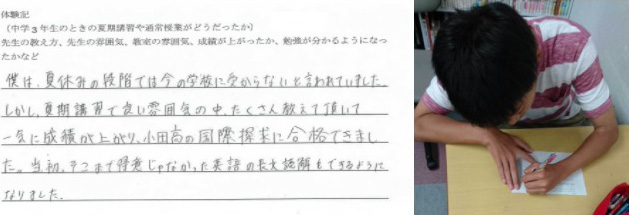 体験記
（中学３年生のときの夏期講習や通常授業がどうだったか）
先生の教え方、先生の雰囲気、教室の雰囲気、成績が上がったか、勉強が分かるようになっ
たかなど
僕は、夏休みの段階では今の学校に欠からないと言われていました。
しかし、夏期講習で良い雰囲気の中、たくさん教えて頂いて
一気に成績が上がり、小田高の国際探求に合格できまし
た。当初、そこまで得意じゃなかった英語の長文読解もできるように
なりました。